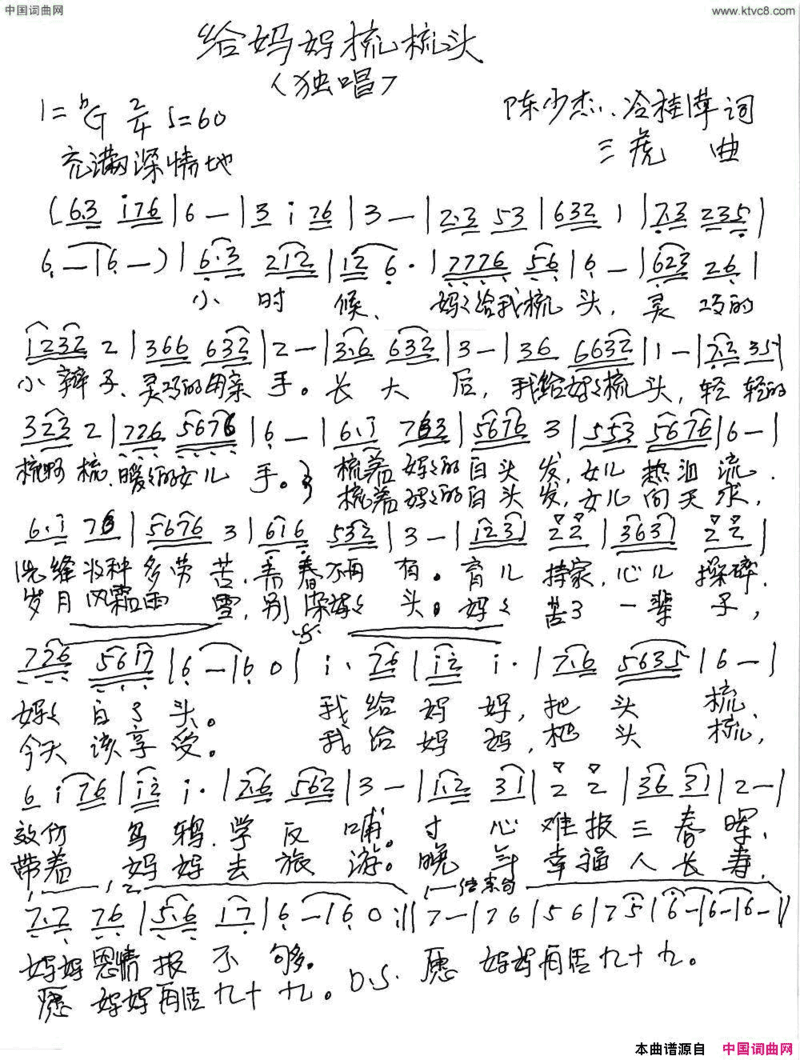 中国词曲网
www.ktvc8.com
给妈妈梳梳头
<独唱>
1=♭G 2/4 ♩=60
陈少杰、冷桂萍 词
充满深情地
三虎 曲
(6.3 i76|6—|3 i 76|3—|2.3 53|632 1|7.3 235|
6—|6—)|6.3 212|12 6.|7776 56|6—|623 26|
小 时 候、 妈々给我梳 头, 灵 巧的
1232 2|366 632|2—|3.6 632|3—|36 6632|1—|7.2 35|
小辫子、灵巧的母亲 手。长 大 后, 我给妈々梳头, 轻 轻的
323 2|776 5676|6—|6.i 763|5676 3|553 5676|6—|
梳啊梳、暖々的女儿 手。 梳着 妈々的白头 发, 女儿 热泪 流.
梳着妈々的白头 发, 女儿 问天 求,
6.i 76|5676 3|616 532|3—|1231 22|3631 22|
洗缝 多劳 苦, 青春不再 有。育儿 持家, 心儿 操碎.
岁月风霜雨 雪, 别染妈々 头。妈々 苦了 一辈 子,
726 5617|6—|60|i. 76|i2 i.|7.6 5635|6—|
妈々 白了 头。 我给 妈 妈, 把 头 梳、
今天 该享 受。 我给 妈 妈, 把 头 梳,
6 i76|i2 i.|2.6 562|3—|1.2 31|2 2|36 31|2—|
效仿 乌 鸦, 学 反 哺。寸 心 难报 三 春 晖,
带着 妈 妈 去 旅 游。晚 年 幸福 人 长 寿,
1 2 结束句
7.7 76|5.6 17|6—|60:||7—|76|56|75|6—|6—|6—||
妈妈恩情 报 不 够。
愿 妈妈再活 九十 九。D.S. 愿 妈妈再活九十九。
本曲谱源自 中国词曲网